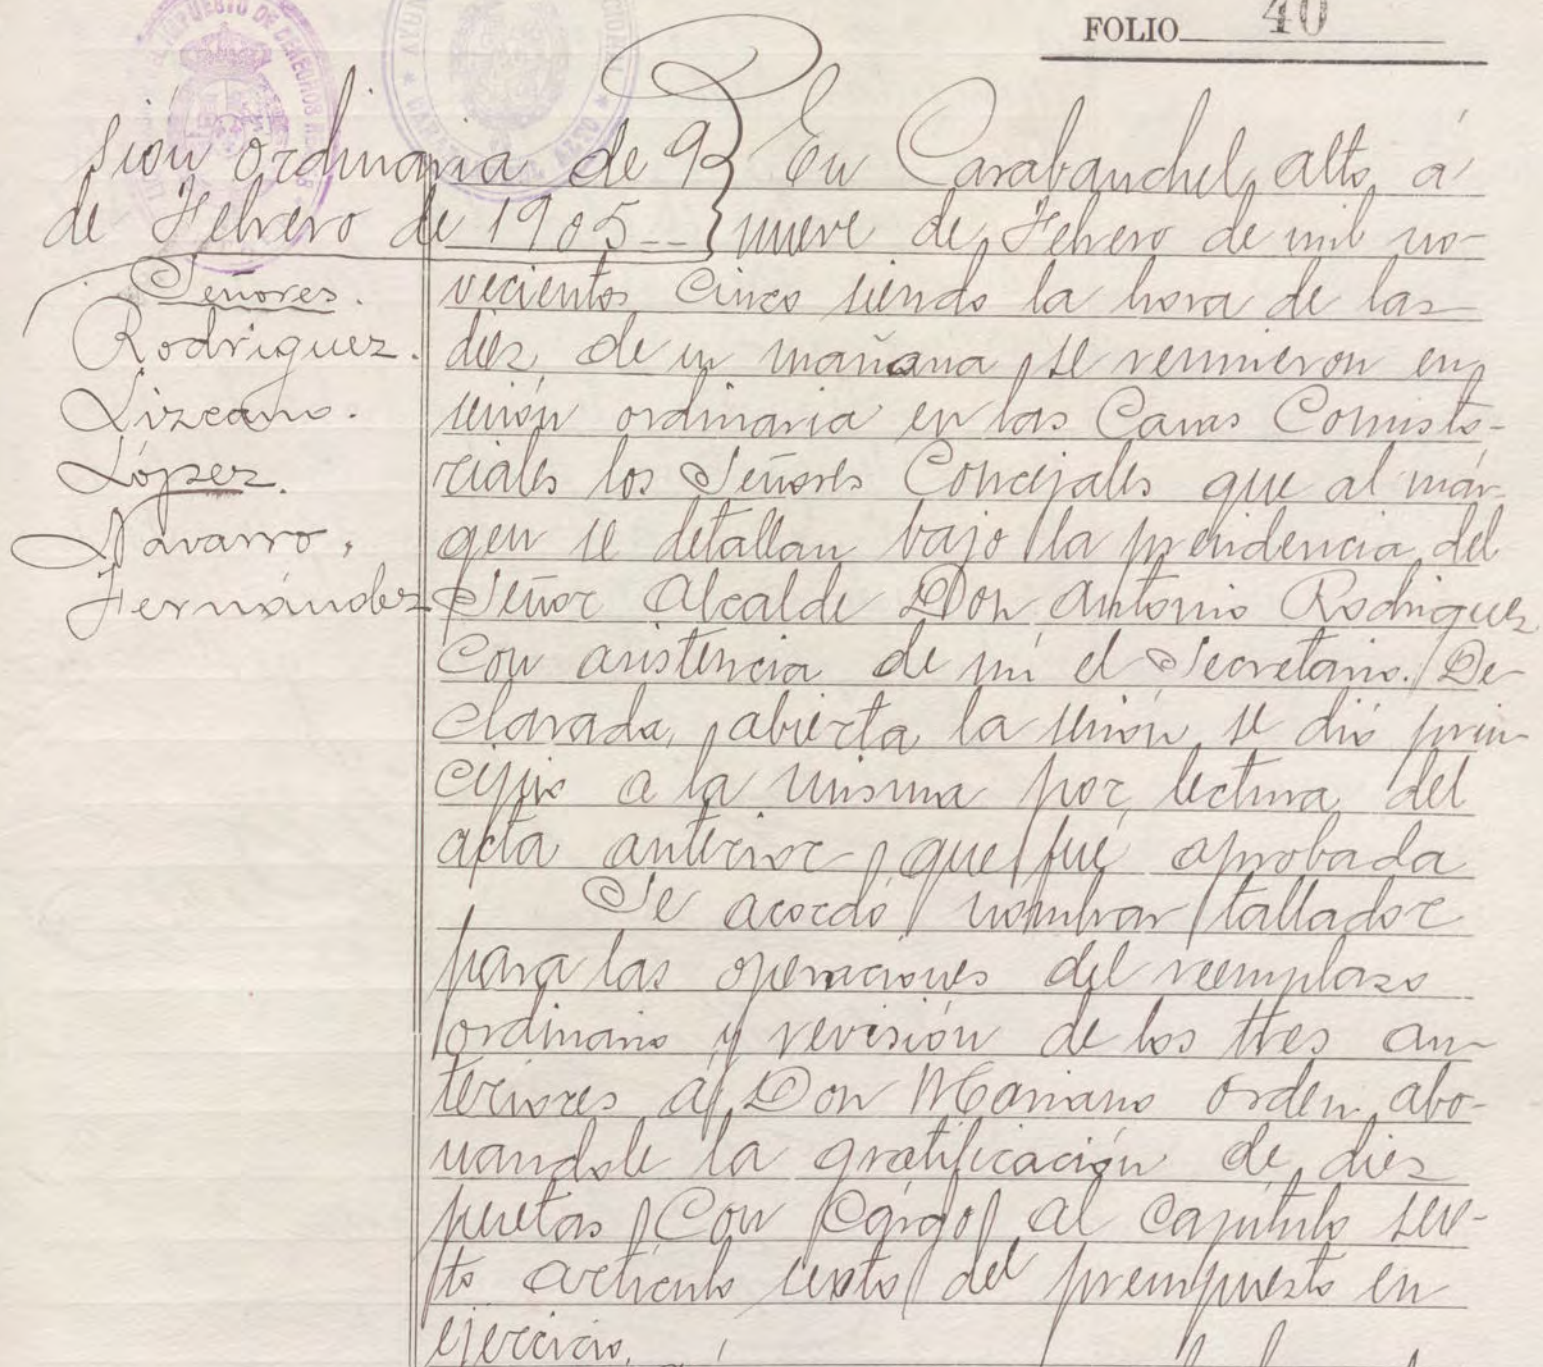 FOLIO 40
sion ordinaria de 9
de Febrero de 1905
Señores.
Rodriguez.
Lizcano.
López.
Navarro,
Fernández
En Carabanchel alto á
nueve de Febrero de mil no-
vecientos cinco siendo la hora de las
diez de su mañana se reunieron en
sesión ordinaria en las Casas Consisto-
riales los Señores Concejales que al már-
gen se detallan bajo la presidencia del
Señor Alcalde Don Antonio Rodriguez
con asistencia de mí el Secretario. De-
clarada abierta la sesión se dió prin-
cipio a la misma por lectura del
acta anterior que fué aprobada
Se acordó nombrar tallador
para las operaciones del reemplazo
ordinario y revisión de los tres an-
teriores á Don Mariano Orden abo-
nandole la gratificación de diez
pesetas con cárgo al capítulo sex-
to artículo sexto del presupuesto en
ejercicio.